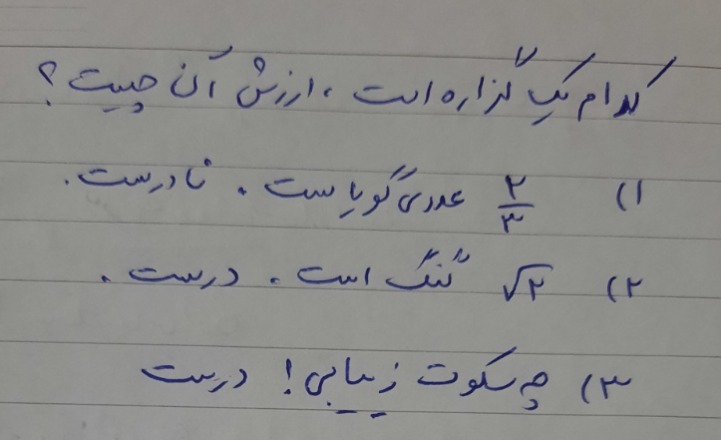 کدام یک گزاره است، ارزش آن چیست؟
۱) ۲/۳ عددی گویا ست. نادرست.
۲) √۲ گنگ است. درست.
۳) چه سکوت زیبایی! درست